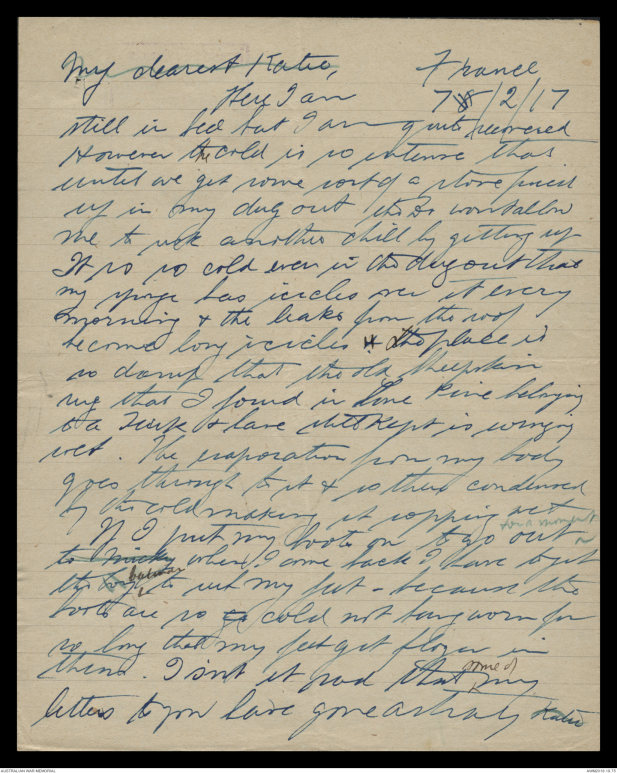 My dearest Katie, France
Here I am 7/2/17
still in bed but I am quite recovered
However the cold is so intense that
until we get some sort of a stove fixed
up in my dug out the Dr wont allow
me to risk another chill by getting up
It is so cold even in the dug out that
my sponge has icicles over it every
morning & the leaks from the roof
become long icicles & the place is
so damp that the old sheepskin
rug that I found in Lone Pine belonging
to a Turk & have still kept is wringing
wet. The evaporation from my body
goes through to it & is there condensed
by the cold making it sopping wet
If I put my boots on to go out for a moment
to when I come back I have to get
the batman to rub my feet – because the
boots are so cold not being worn for
so long that my feet get frozen in
them. Isn't it sad that some of my
letters to you have gone astray Katie
AUSTRALIAN WAR MEMORIAL